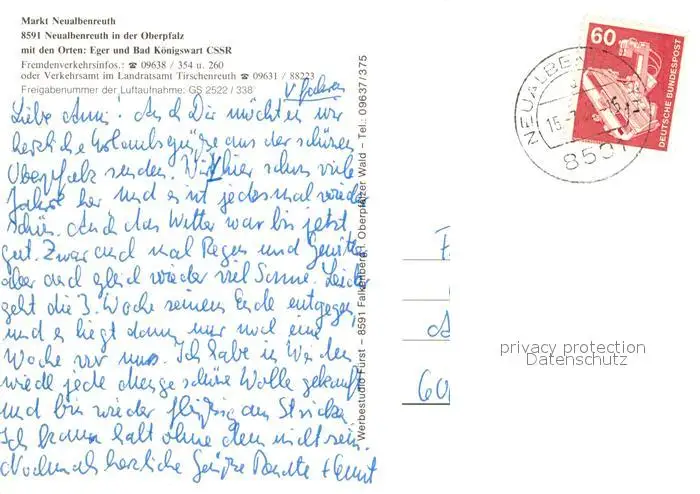 Markt Neualbenreuth
8591 Neualbenreuth in der Oberpfalz
mit den Orten: Eger und Bad Königswart CSSR
Fremdenverkehrsinfos.: ☎ 09638 / 354 u. 260
oder Verkehrsamt im Landratsamt Tirschenreuth ☎ 09631 / 88223
Freigabenummer der Luftaufnahme: GS 2522 / 338
V fahren
Liebe Anni! Auch Dir möchten wir
herzliche Urlaubsgrüße aus der schönen
Oberpfalz senden. Wir hier schon viele
Jahre her und es ist jedesmal wieder
schön. Auch das Wetter war bis jetzt
gut. Zwar auch mal Regen und Gewitter
aber auch gleich wieder viel Sonne. Leider
geht die 3. Woche seinem Ende entgegen
und es liegt dann nur noch eine
Woche vor uns. Ich habe in Weiden
wieder jede Menge schöne Wolle gekauft
und bin wieder fleißig am Stricken.
Ich kann halt ohne dem nicht sein.
Nochmals herzliche Grüße
Werbestudio Fürst – 8591 Falkenberg i. Oberpfälzer Wald – Tel.: 09637/375
60
DEUTSCHE BUNDESPOST
NEUALBE
15.
8591
privacy protection
Datenschutz